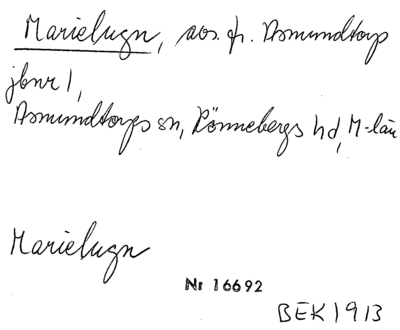 Marielugn, avs. fr. Asmundtorp
jbnr 1,
Asmundtorps sn, Rönnebergs hd, M-län
Marielugn
Nr 16692
BEK 1913